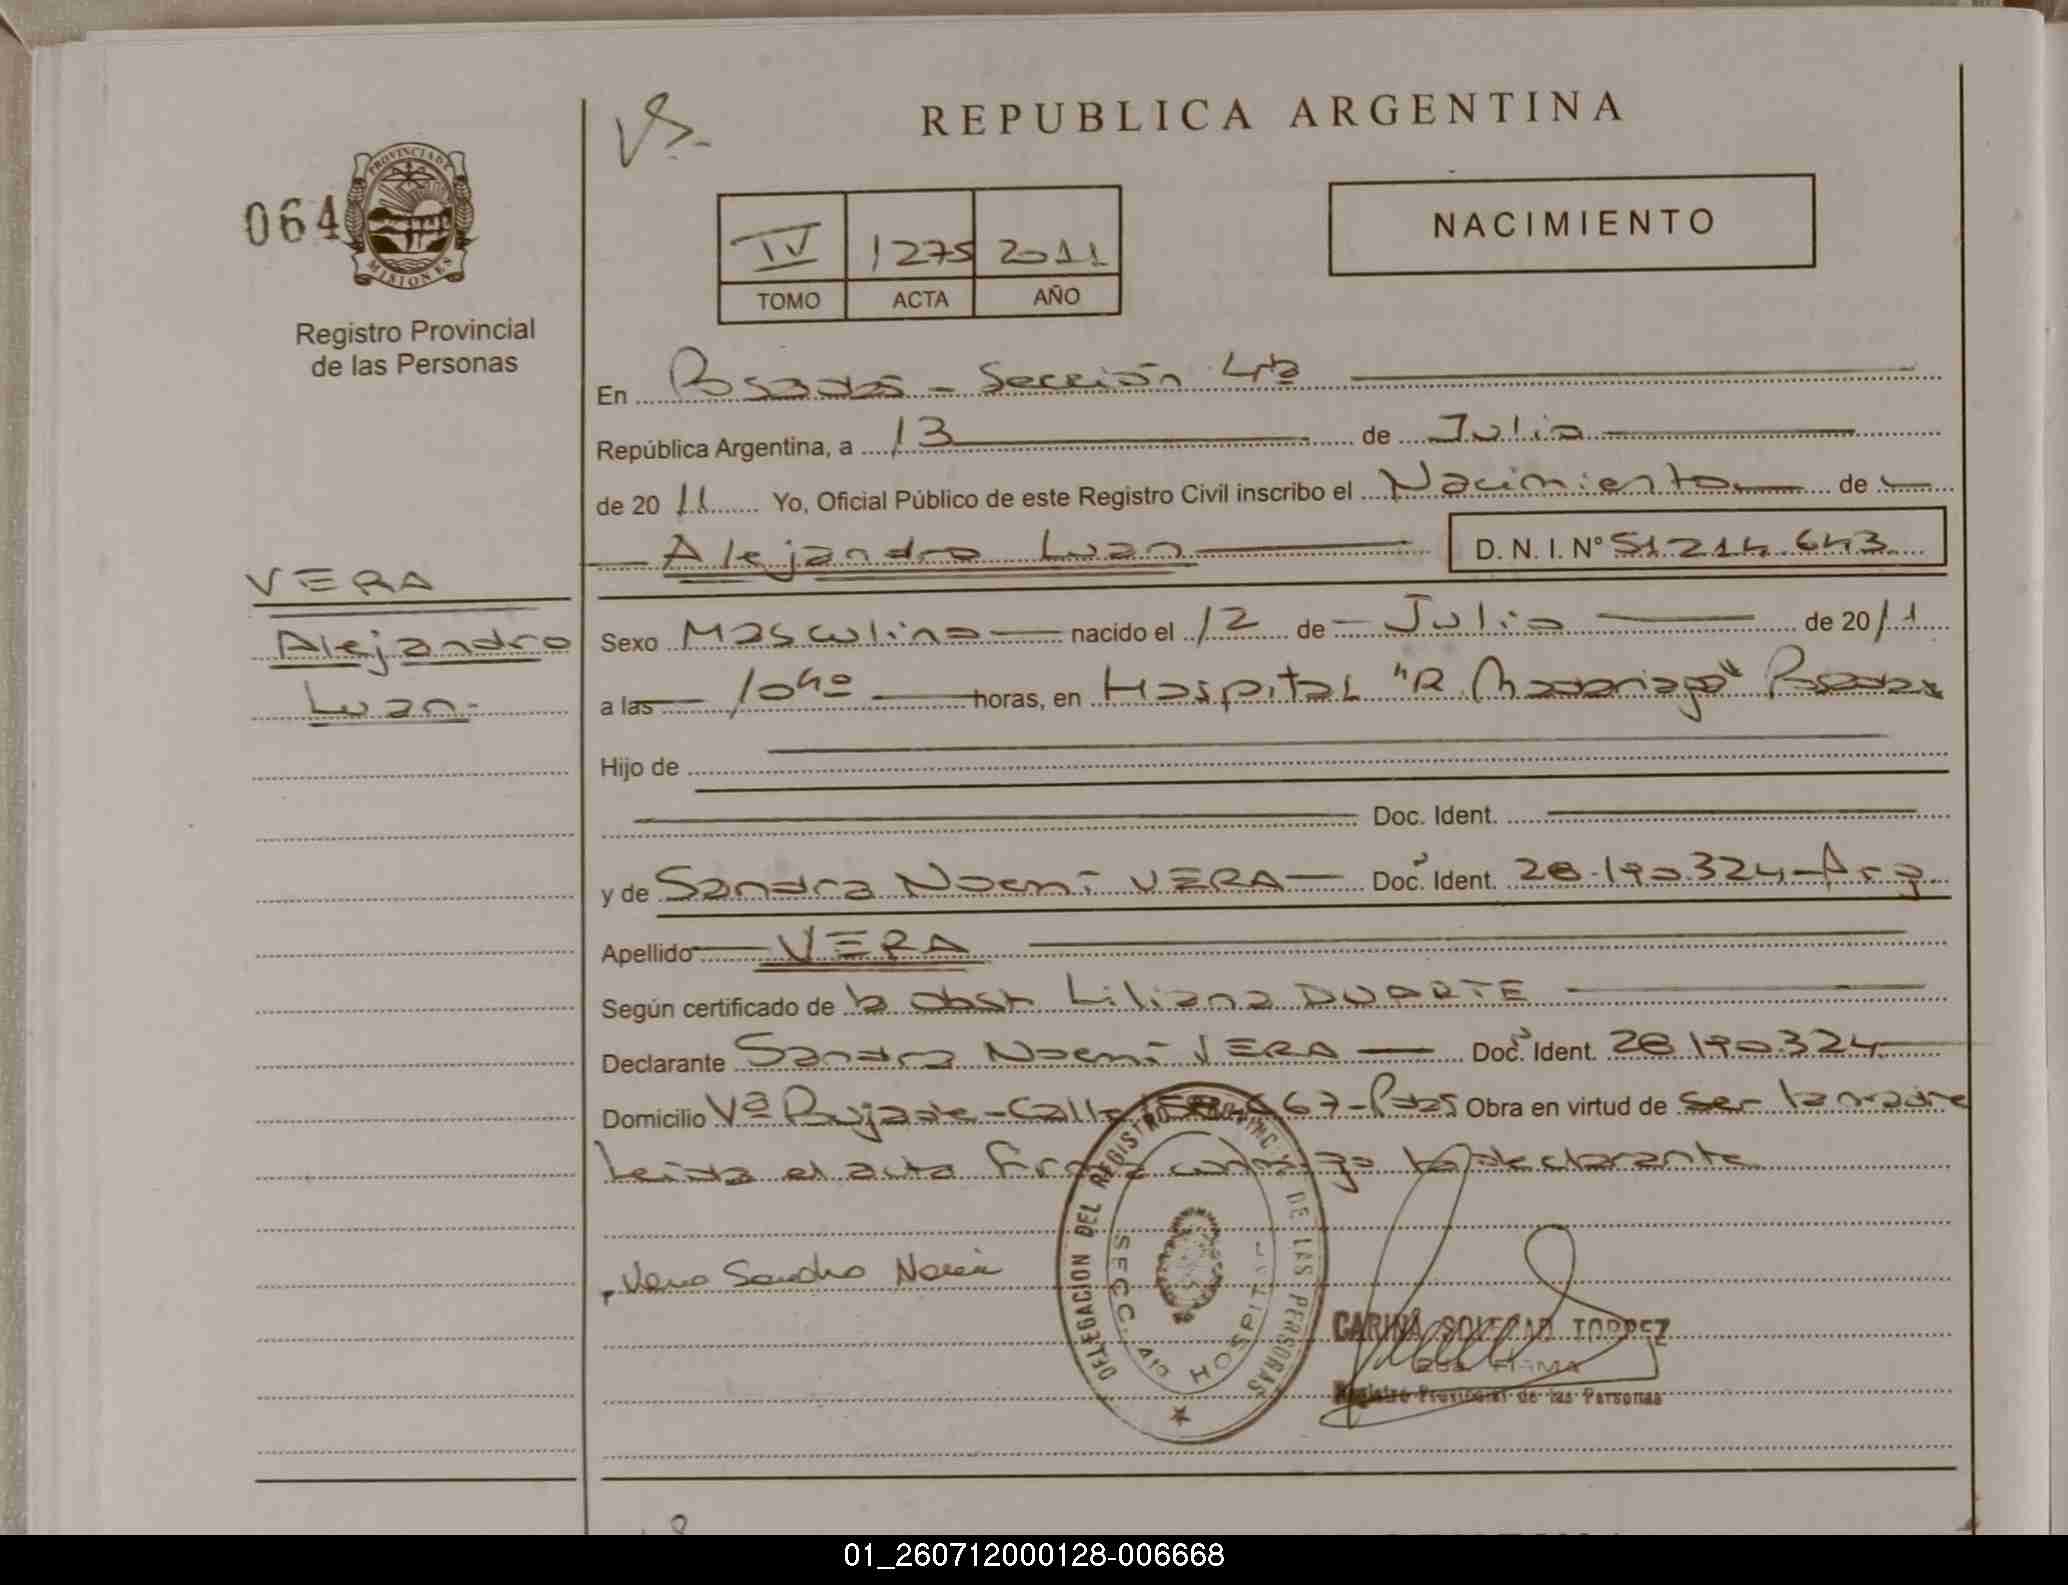 REPUBLICA ARGENTINA
064
PROVINCIA DE
MISIONES
Registro Provincial
de las Personas
IV 1275 2011
TOMO ACTA AÑO
NACIMIENTO
En Posadas - Sección 4ta
República Argentina, a 13 de Julio
de 2011 Yo, Oficial Público de este Registro Civil inscribo el Nacimiento de
Alejandro Luan D.N.I. Nº 51.214.643
VERA
Alejandro
Luan.-
Sexo Masculino nacido el 12 de Julio de 2011
a las 10 40 horas, en Hospital "R. Madariaga" Posadas
Hijo de
Doc. Ident.
y de Sandra Noemí VERA Doc. Ident. 28.190.324-Arg.
Apellido VERA
Según certificado de la obst. Liliana DUARTE
Declarante Sandra Noemí VERA Doc. Ident. 28.190.324
Domicilio Vª - Calle 667 - Pdas Obra en virtud de ser la madre
Leida el acta firma conmigo la declarante
Vera Sandra Noemi
DELEGACION DEL REGISTRO PROVINCIAL DE LAS PERSONAS
SECC. 4ta HOSPITAL
CARINA SOLEDAD TORREZ
2da FIRMA
Registro Provincial de las Personas
01_260712000128-006668